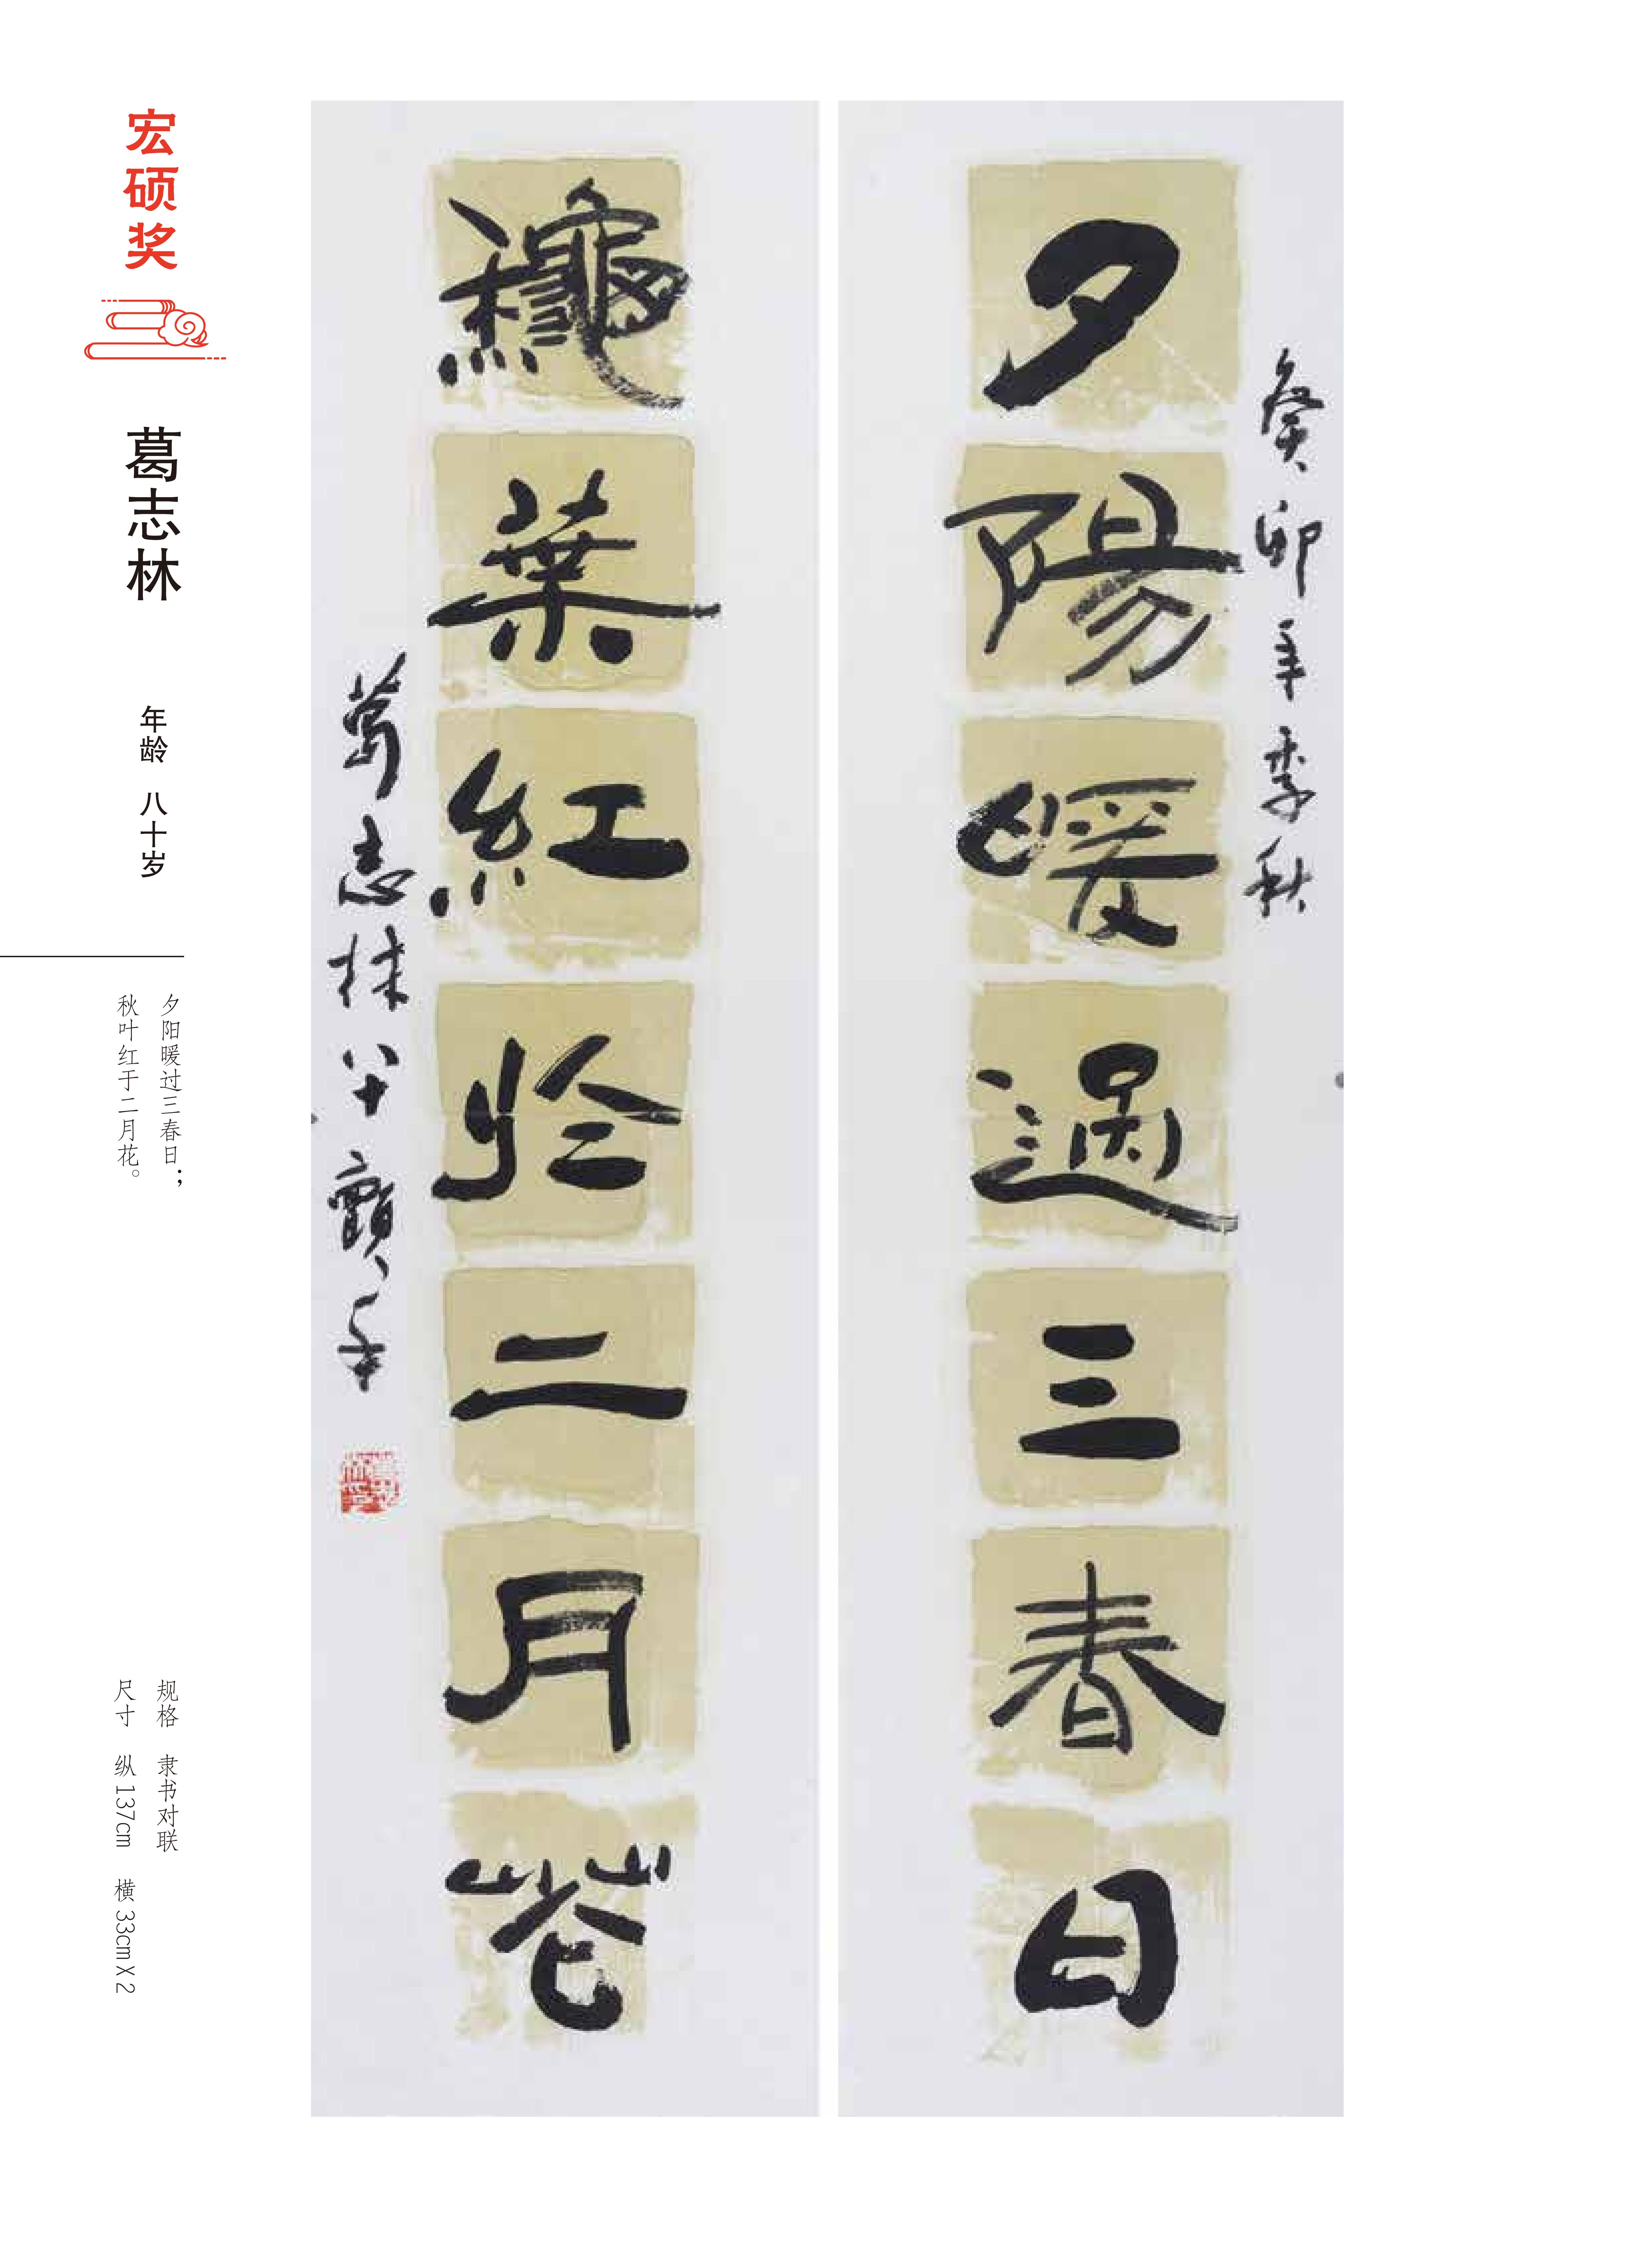 宏硕奖
葛志林
年龄 八十岁
夕阳暖过三春日；
秋叶红于二月花。
规格 隶书对联
尺寸 纵137cm 横33cm X 2
癸卯年季秋
夕陽暖過三春日
龝葉紅於二月花
葛志林八十